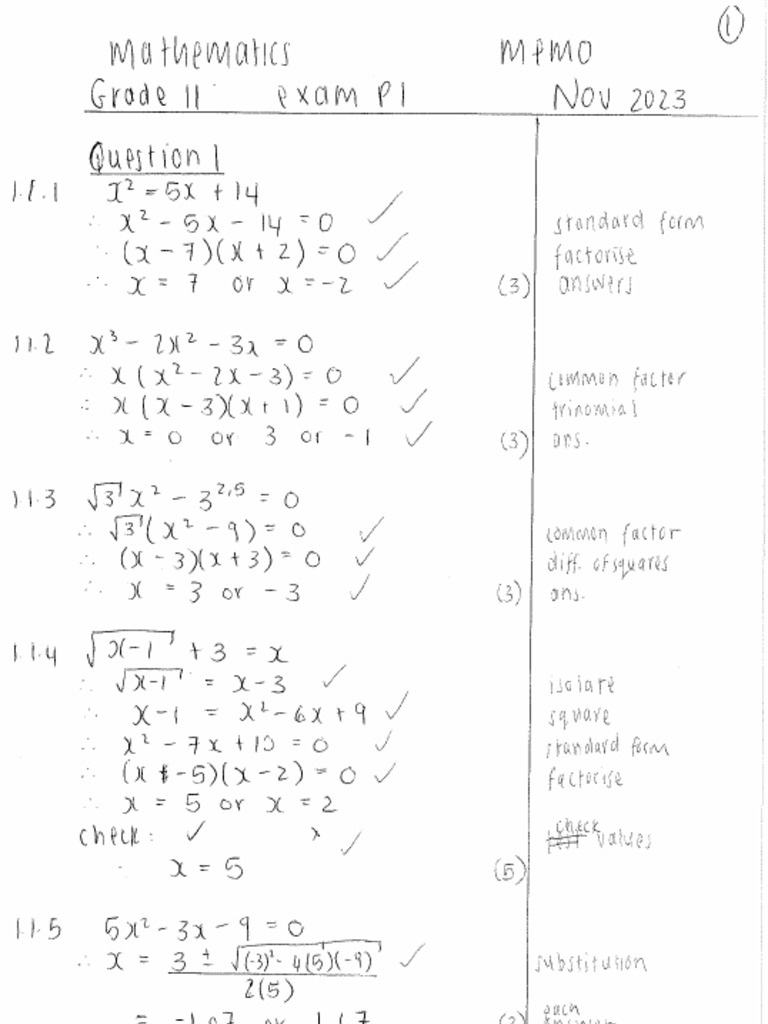 ①
Mathematics Memo
Grade 11 exam P1 Nov 2023
Question 1
1.1.1 x² = 5x + 14
∴ x² - 5x - 14 = 0 ✓ standard form
∴ (x - 7)(x + 2) = 0 ✓ factorise
∴ x = 7 or x = -2 ✓ (3) answers
1.1.2 x³ - 2x² - 3x = 0
∴ x(x² - 2x - 3) = 0 ✓ common factor
∴ x(x - 3)(x + 1) = 0 ✓ trinomial
∴ x = 0 or 3 or -1 ✓ (3) ans.
1.1.3 √3 x² - 3^2,5 = 0
∴ √3(x² - 9) = 0 ✓ common factor
∴ (x - 3)(x + 3) = 0 ✓ diff. of squares
∴ x = 3 or -3 ✓ (3) ans.
1.1.4 √(x-1) + 3 = x
∴ √(x-1) = x - 3 ✓ isolate
∴ x - 1 = x² - 6x + 9 ✓ square
∴ x² - 7x + 10 = 0 ✓ standard form
∴ (x - 5)(x - 2) = 0 ✓ factorise
∴ x = 5 or x = 2
check: ✓ x ✓ check values
∴ x = 5 (5)
1.1.5 5x² - 3x - 9 = 0
∴ x = (3 ± √((-3)² - 4(5)(-9))) / 2(5) ✓ substitution
each